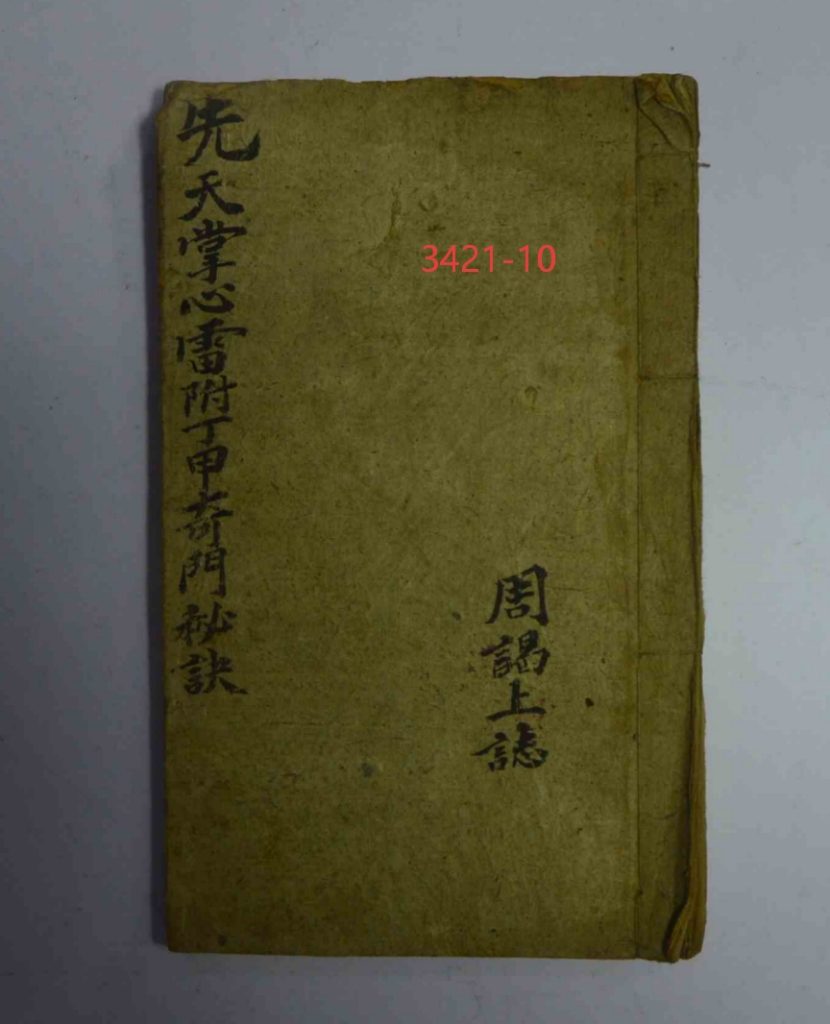 3421-10
周謁上誌
先天掌心雷附丁甲奇門秘訣